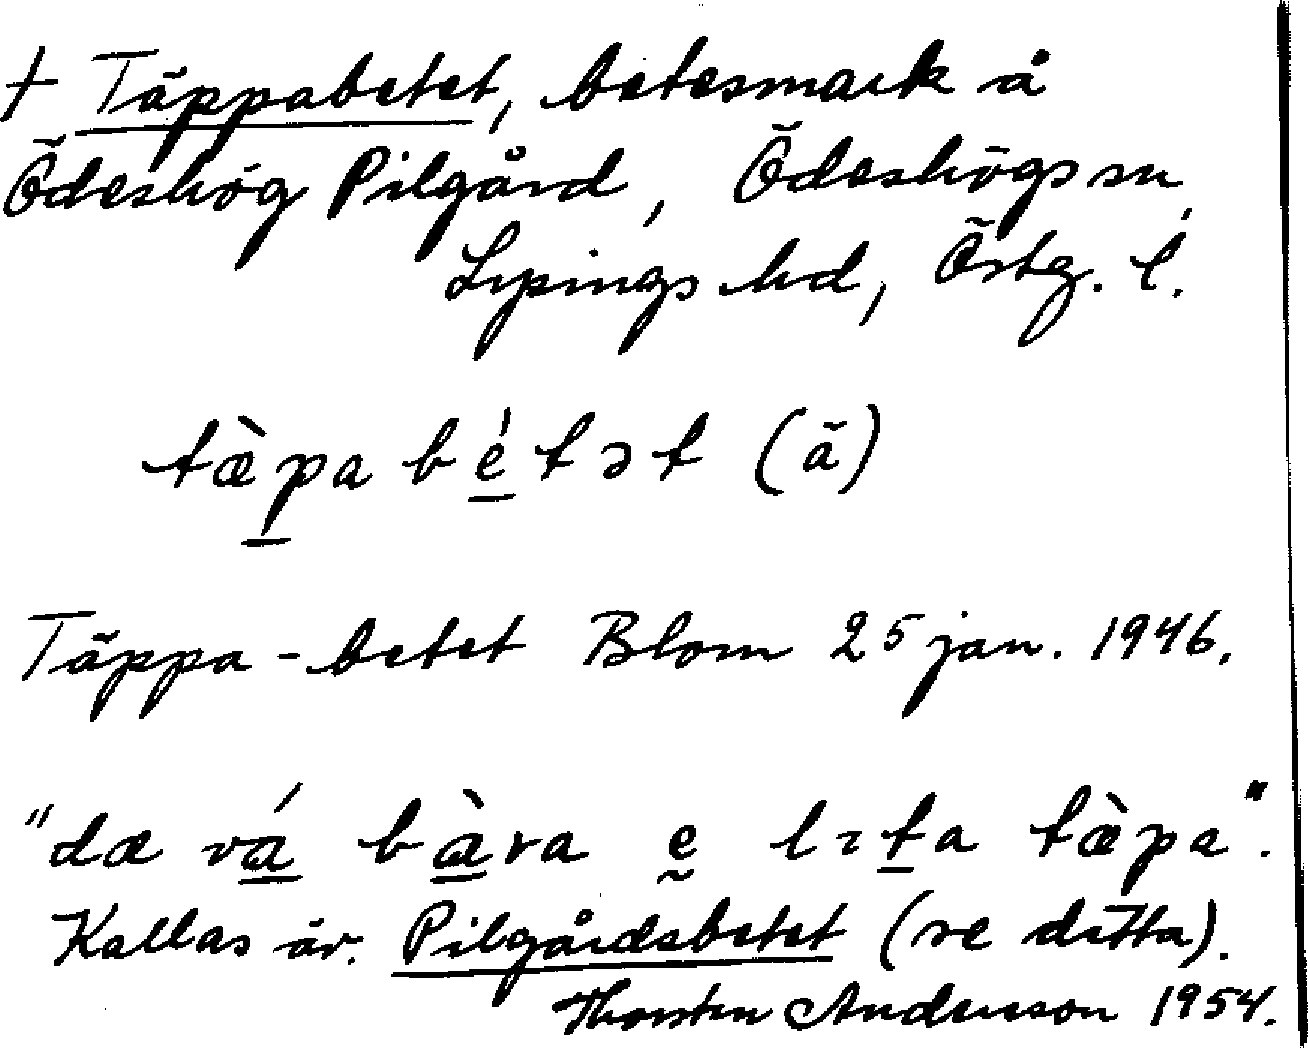 † Täppabetet, betesmark å
Ödeshög Pilgård, Ödeshögs sn,
Lysings hd, Östg. l.
tæ̀pabétət (ã)
Täppa-betet Blom 25 jan. 1946.
"dæ vá bàra e lɩta tæ̀pa".
Kallas äv. Pilgårdsbetet (se detta).
Thorsten Andersson 1954.